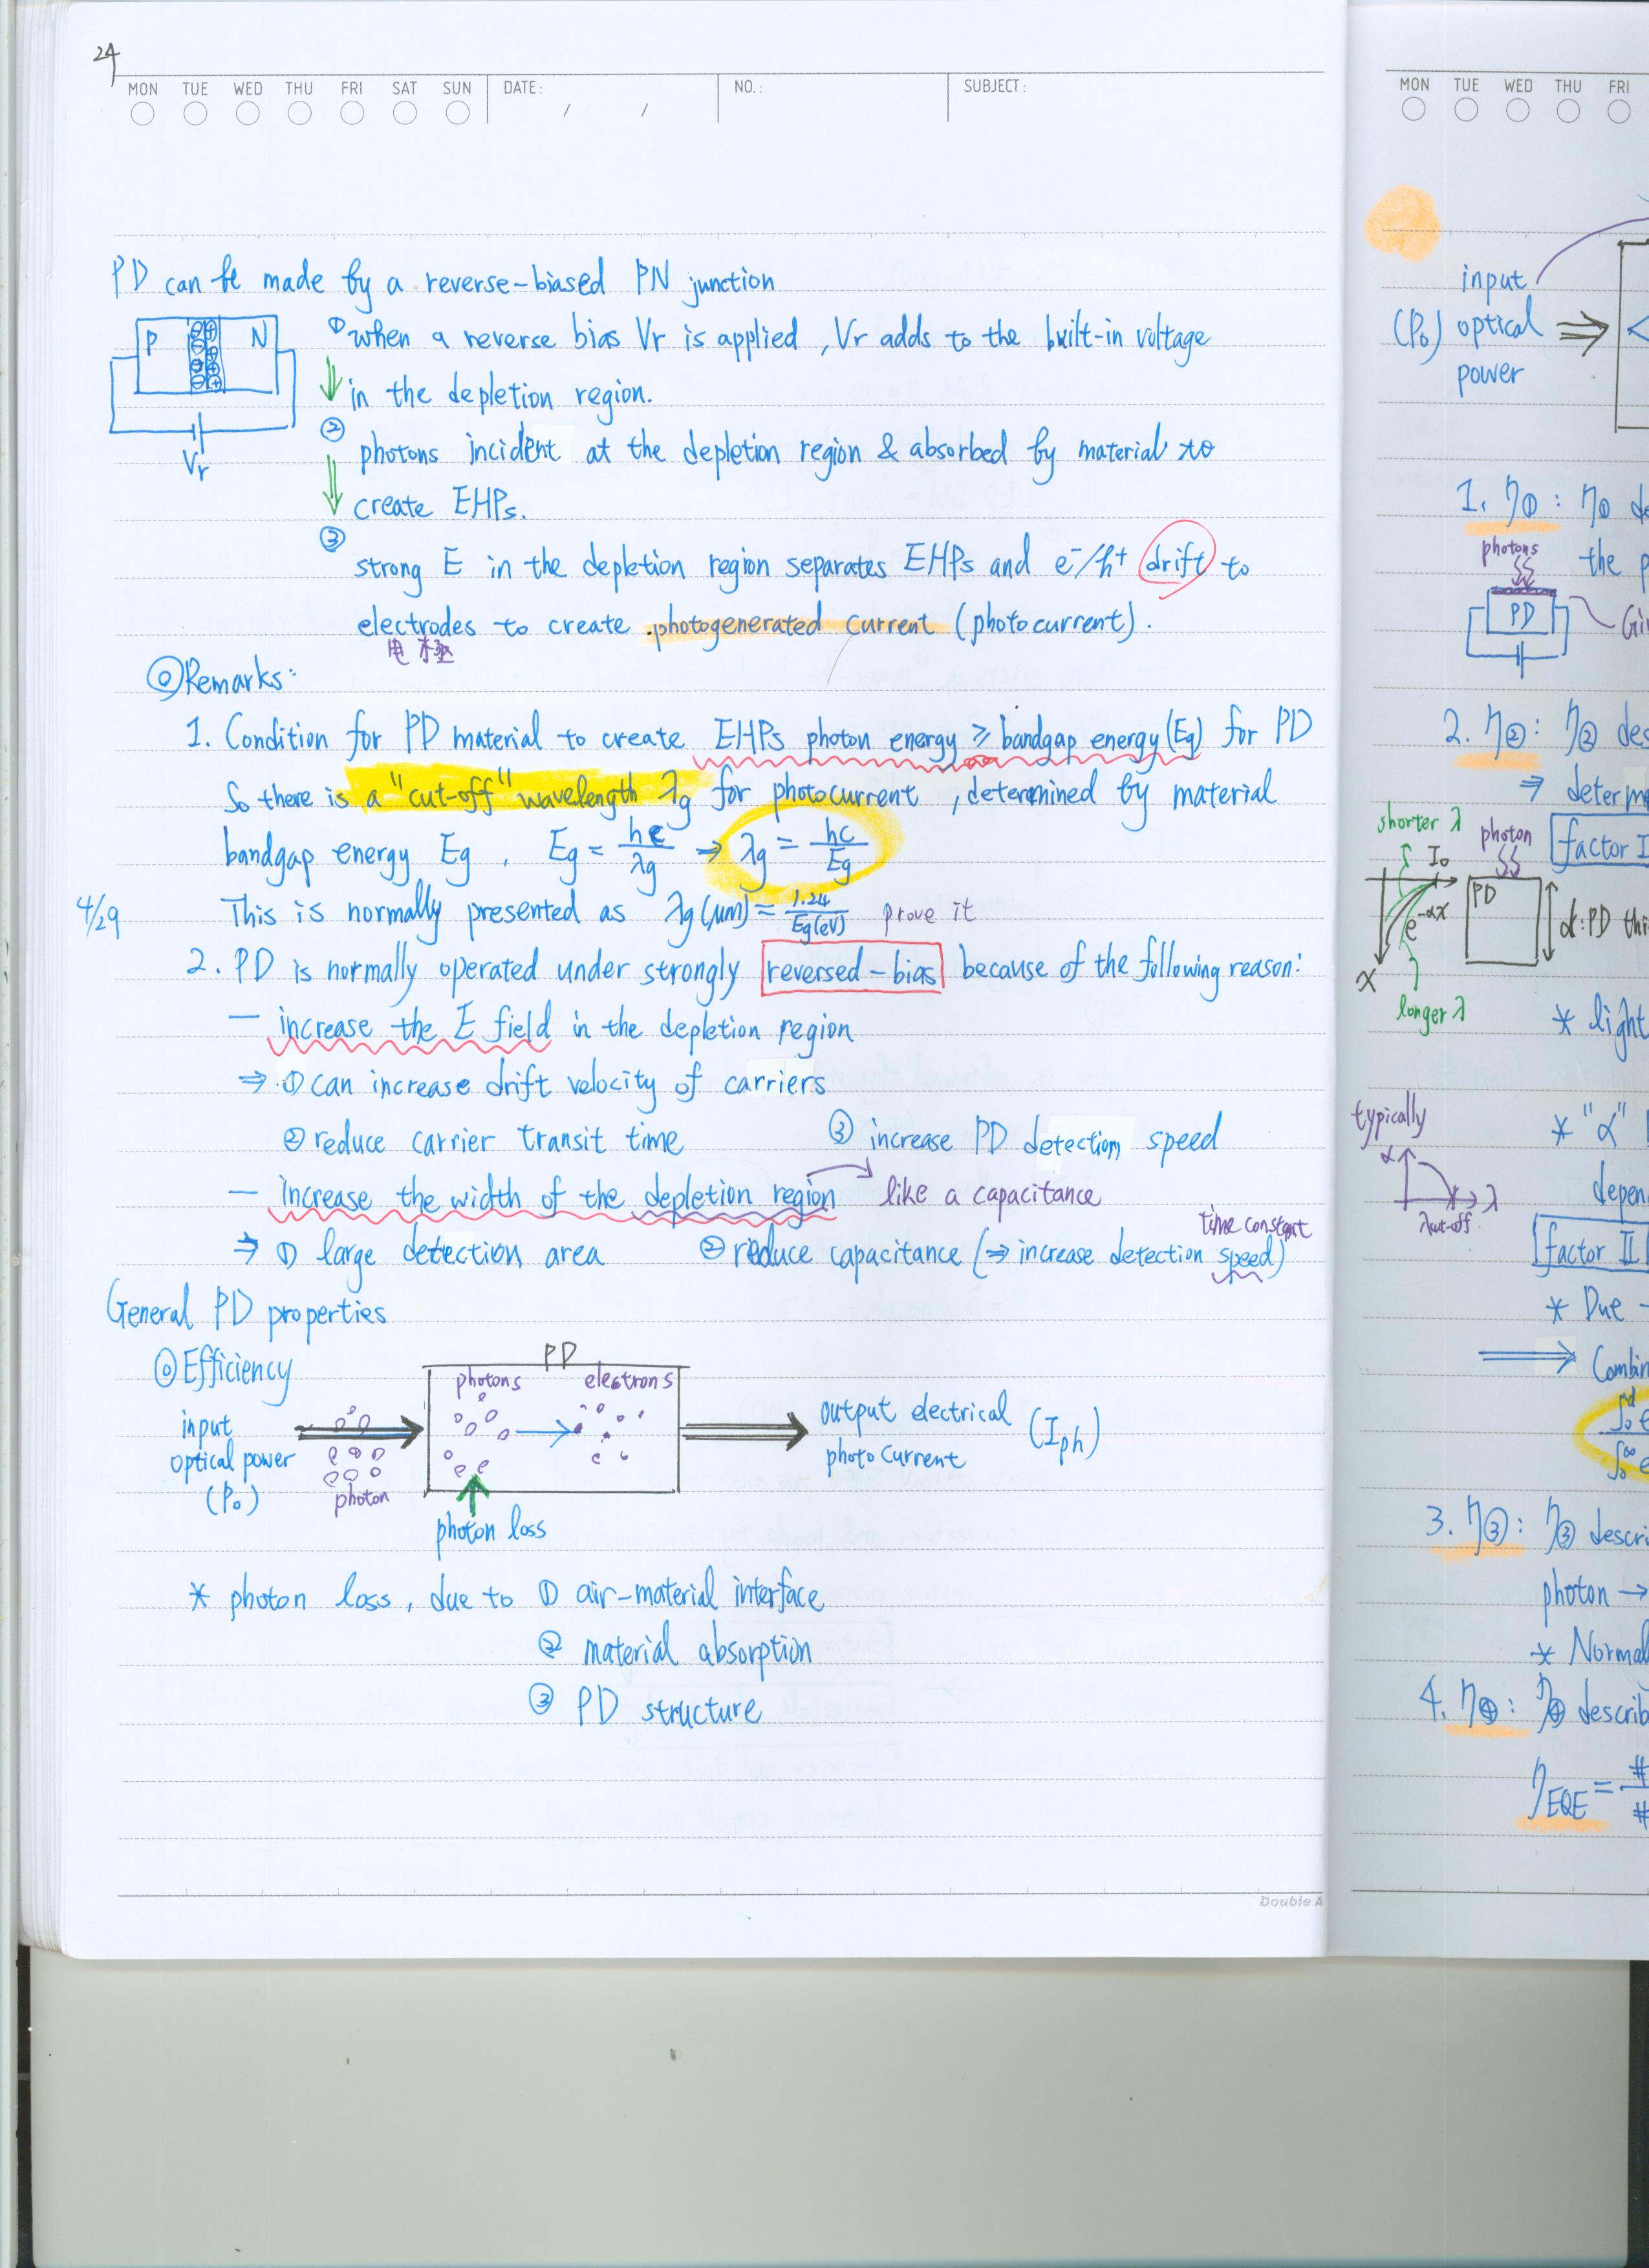 24
MON TUE WED THU FRI SAT SUN DATE: / / NO.: SUBJECT:
PD can be made by a reverse-biased PN junction
P N
Vr
① when a reverse bias Vr is applied, Vr adds to the built-in voltage
in the depletion region.
②
photons incident at the depletion region & absorbed by material to
create EHPs.
③
strong E in the depletion region separates EHPs and e⁻/h⁺ drift to
electrodes to create photogenerated current (photocurrent).
电極
◎Remarks:
1. Condition for PD material to create EHPs photon energy ≥ bandgap energy (Eg) for PD
So there is a "cut-off" wavelength λg for photocurrent, determined by material
bandgap energy Eg. Eg = hc/λg → λg = hc/Eg
4/29 This is normally presented as λg(μm) = 1.24/Eg(eV) prove it
2. PD is normally operated under strongly reversed-bias because of the following reason:
— increase the E field in the depletion region
⇒ ① can increase drift velocity of carriers
② reduce carrier transit time ③ increase PD detection speed
— increase the width of the depletion region like a capacitance
time constant
⇒ ① large detection area ② reduce capacitance (⇒ increase detection speed)
General PD properties
◎Efficiency
PD
photons electrons
input
optical power
(Po)
photon
photon loss
output electrical
photocurrent
(Iph)
* photon loss, due to ① air-material interface
② material absorption
③ PD structure
Double A
MON TUE WED THU FRI
input
(Po) optical
power
1. η①: η①
photons
the
PD
2. η②: η② des
⇒ determ
shorter λ
photon
factor I
I₀
PD
e^-αx
d: PD thi
x
longer λ
* light
typically
* "α"
α
λ
λcut-off
depen
factor II
* Due
⇒ Combin
3. η③: η③ describ
photon →
* Normal
4. η④: η④ describ
ηEQE = #/#